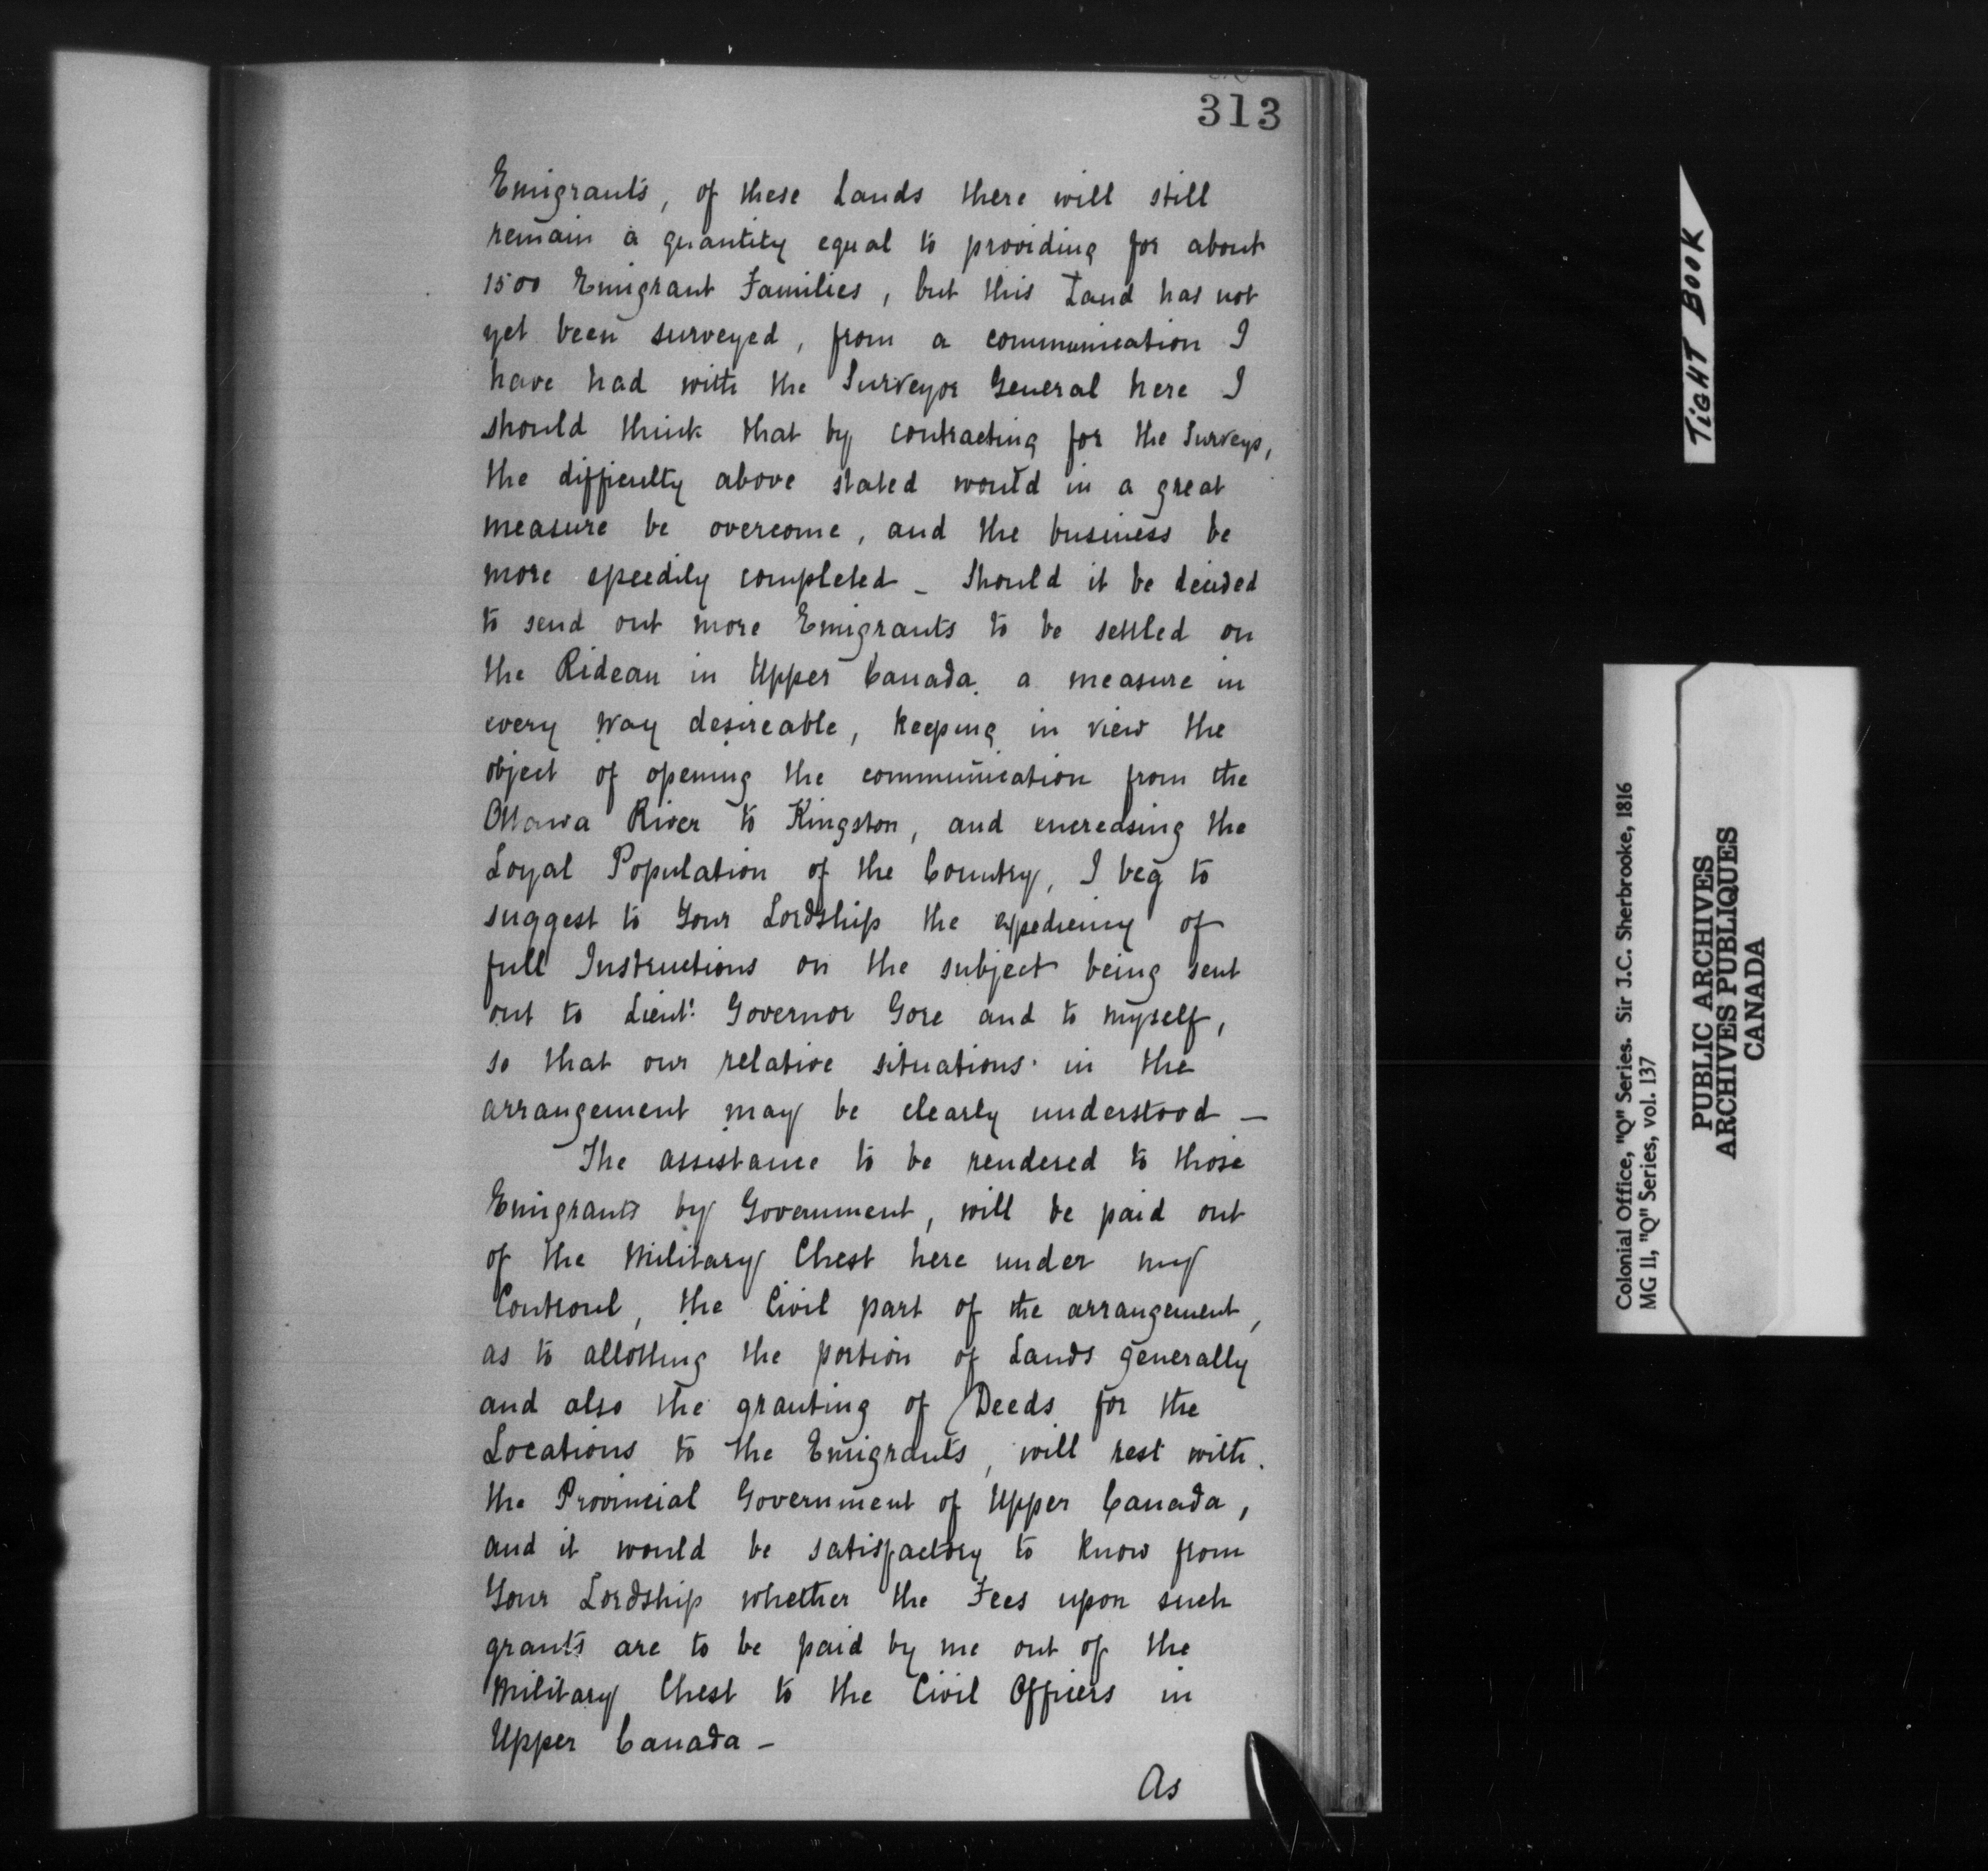 313
Emigrants, of these Lands there will still
remain a quantity equal to providing for about
1500 Emigrant Families, but this Land has not
yet been surveyed, from a communication I
have had with the Surveyor General here I
should think that by contracting for the Surveys,
the difficulty above stated would in a great
measure be overcome, and the business be
more speedily completed - Should it be decided
to send out more Emigrants to be settled on
the Rideau in Upper Canada, a measure in
every way desireable, keeping in view the
object of opening the communication from the
Ottawa River to Kingston, and encreasing the
Loyal Population of the Country, I beg to
suggest to Your Lordship the expediency of
full Instructions on the subject being sent
out to Lieut: Governor Gore and to myself,
so that our relative situations in the
arrangement may be clearly understood -
The assistance to be rendered to those
Emigrants by Government, will be paid out
of the Military Chest here under my
Controul, the Civil part of the arrangement,
as to allotting the portion of Lands generally
and also the granting of Deeds for the
Locations to the Emigrants, will rest with
the Provincial Government of Upper Canada,
and it would be satisfactory to know from
Your Lordship whether the Fees upon such
grants are to be paid by me out of the
Military Chest to the Civil Officers in
Upper Canada -
As
TIGHT BOOK
Colonial Office, "Q" Series. Sir J.C. Sherbrooke, 1816
MG 11, "Q" Series, vol. 137
PUBLIC ARCHIVES
ARCHIVES PUBLIQUES
CANADA